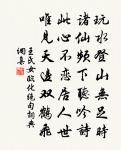 玩水登山無足時
諸仙頻下聽吟詩
此心不戀居人世
唯見天邊雙鶴飛
王氏女臨化絕句詞典
網集